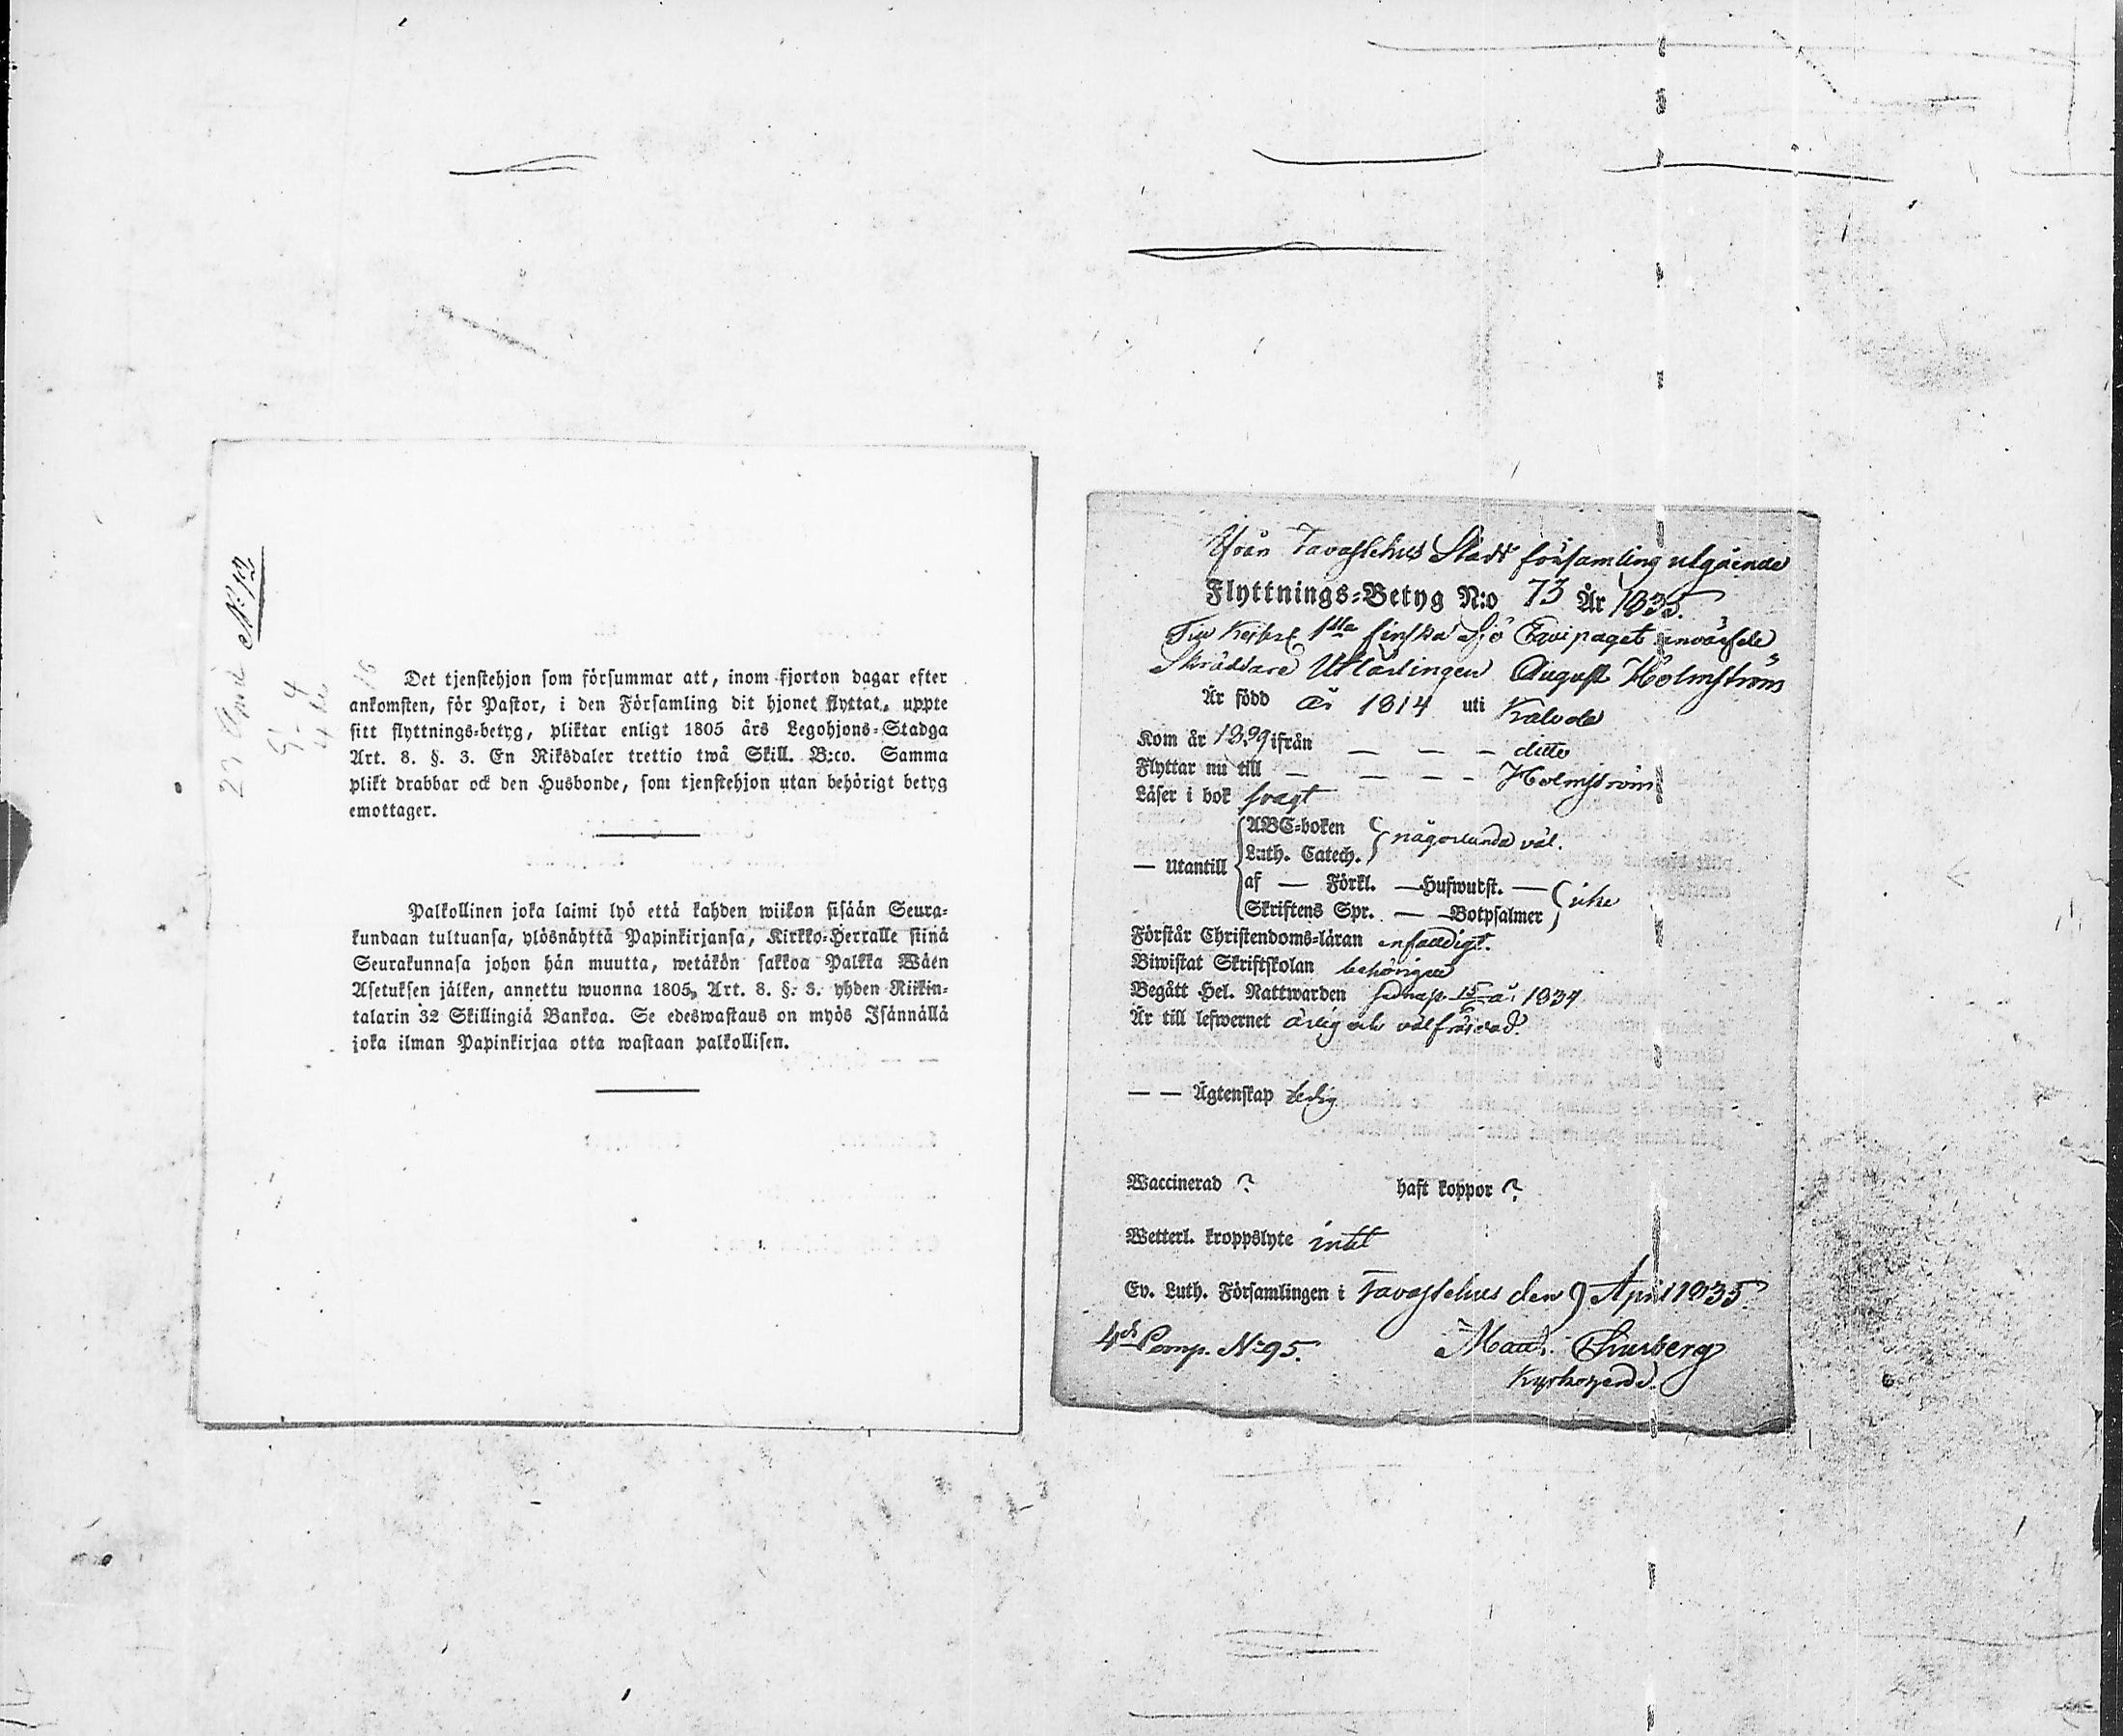 N:o 73
Det tjenstehjon som försummar att, inom fjorton dagar efter
ankomsten, för Pastor, i den Församling dit hjonet flyttat, uppte
sitt flyttnings-betyg, pliktar enligt 1805 års Legohjons-Stadga
Art. 8. §. 3. En Riksdaler trettio twå Skill. B:co. Samma
plikt drabbar ock den Husbonde, som tjenstehjon utan behörigt betyg
emottager.
Palkollinen joka laimi lyö että kahden wiikon sisään Seura-
kundaan tultuansa, ylösnäyttä Papinkirjansa, Kirkko-Herralle siinä
Seurakunnasa johon hän muutta, wetäkön sakkoa Palkka Wäen
Asetuksen jälken, annettu wuonna 1805, Art. 8. §. 3. yhden Riikin-
talarin 32 Skillingiä Bankoa. Se edeswastaus on myös Isännällä
joka ilman Papinkirjaa otta wastaan palkollisen.
Från Tavastehus Stads församling utgående
Flyttnings-Betyg N:o 73 År 1835.
Till Keiserl 1sta finska Sjö Equipaget
Skräddare Utlärlingen August Holmström
Är född år 1814 uti Kalvola
Kom år 1829 ifrån — — — ditto
Flyttar nu till — — — Holmström
Läser i bok svagt
— Utantill
ABC-boken
Luth. Catech. någorlunda väl.
af — Förkl. — Hufwudst. —
Skriftens Spr. — — Botpsalmer icke
Förstår Christendoms-läran enfaldigt.
Biwistat Skriftskolan behörigen
Begått Hel. Nattwarden sednast 1834
Är till lefwernet ärlig och välfräjdad.
— — Ägtenskap ledig
Waccinerad ? haft koppor ?
Wetterl. kroppslyte intet
Ev. Luth. Församlingen i Tavastehus den 9 April 1835.
4de Comp. No 95.
Kyrkoherde.